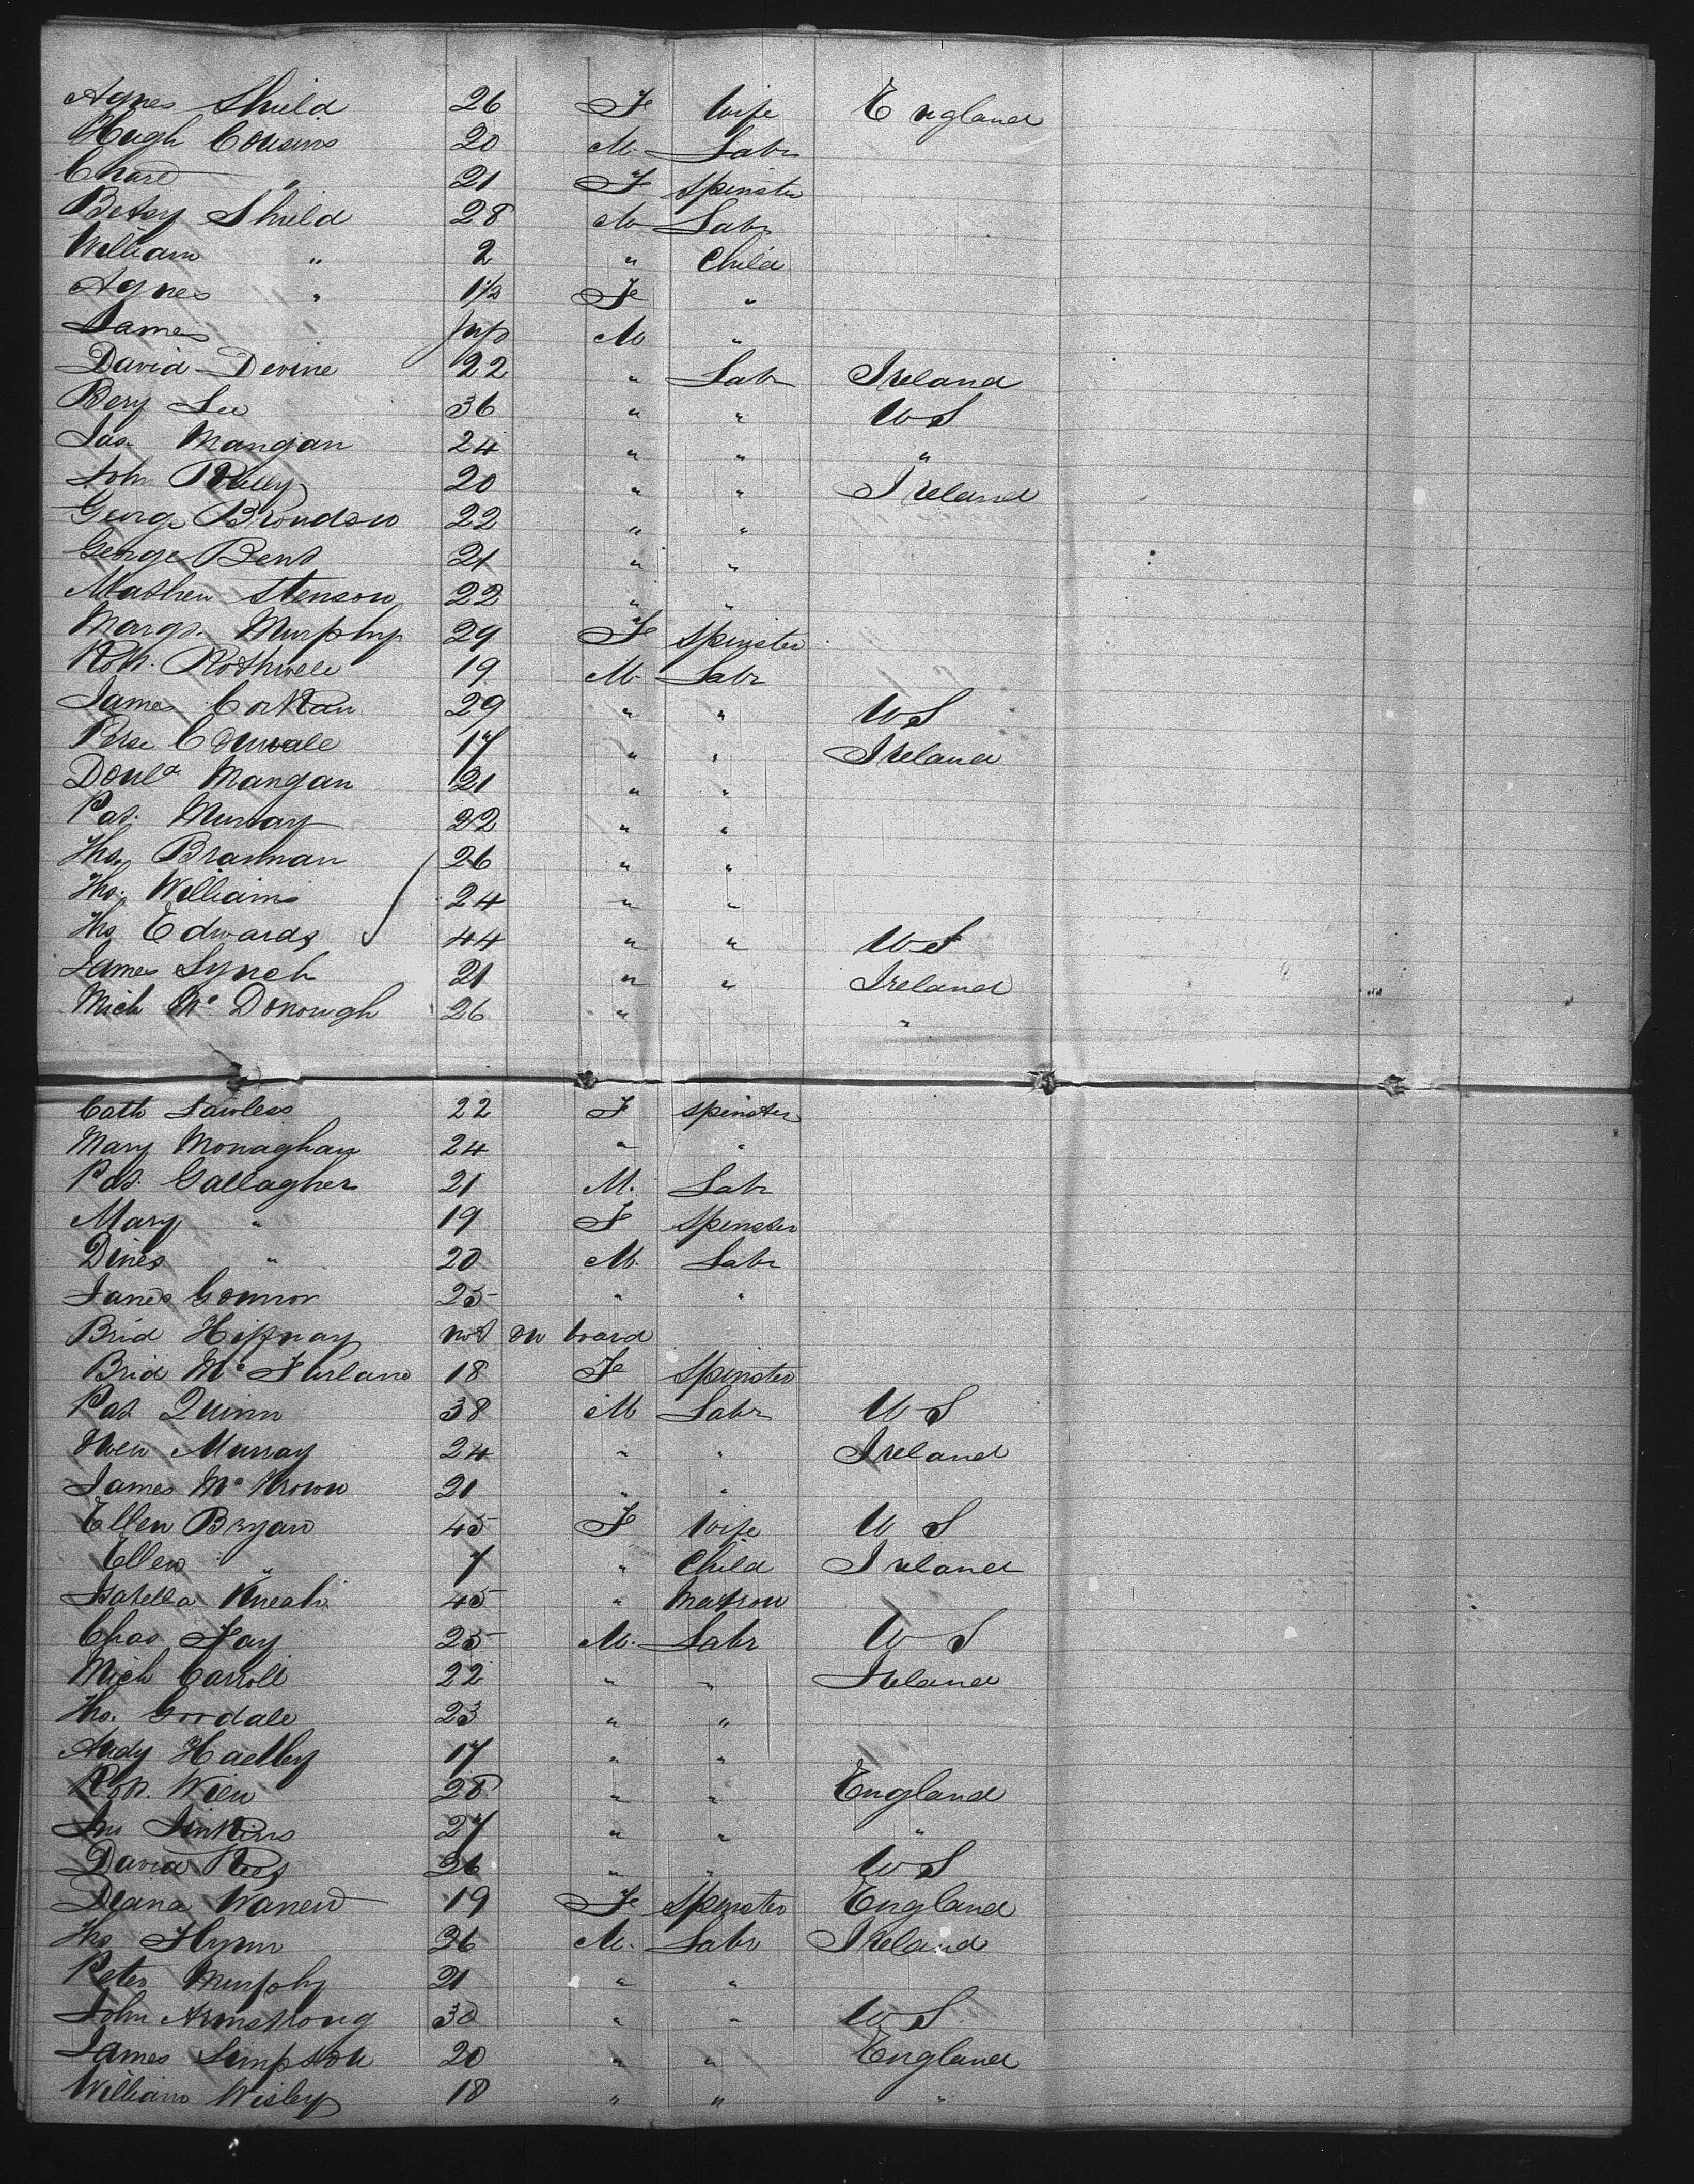 Agnes Shield 26 Fe Wife England
Hugh Cousins 20 M. Labr
Chard " 21 Fe Spinster
Betsy Shield 28 M Labr
William " 2 " Child
Agnes " 1½ Fe "
James Inf M "
David Devine 22 " Labr Ireland
Benj Lee 36 " " US
Jas. Mangan 24 " " "
John 20 " " Ireland
George 22 " "
George Bent 21 " "
Mathew Stenson 22 " "
Margt. Murphy 29 Fe Spinster
Robt. Rothwell 19 M Labr
James Corkan 29 " " US
17 " " Ireland
Mangan 21 " "
Pat. Murray 22 " "
Thos Brannan 26 " "
Thos. Williams 24 " "
Thos Edwards 44 " " US
James Lynch 21 " " Ireland
Mich Mc Donough 26 " "
Cath Lawless 22 F Spinster
Mary Monaghan 24 " "
Pat. Gallagher 21 M. Labr
Mary " 19 F Spinster
Dines " 20 M. Labr
James Connor 25 " "
Brid not on board
Brid Mc 18 Fe Spinster
Pat Quinn 38 M Labr US
Owen Murray 24 " " Ireland
James Mc 21 " "
Ellen Bryan 45 F Wife US
Ellen " 7 " Child Ireland
Isabella 45 " Matron
Chas Fay 25 M. Labr US
Mich Carroll 22 " " Ireland
Tho. Goodale 23 " "
Andy 17 " "
Robt. 28 " " England
Jno Jenkins 27 " " "
David Rees 26 " " US
Diana 19 Fe Spinster England
Tho Flynn 36 M. Labr Ireland
Peter Murphy 21 " "
John Armstrong 30 " " US
James Simpson 20 " " England
William Wisley 18 " " "